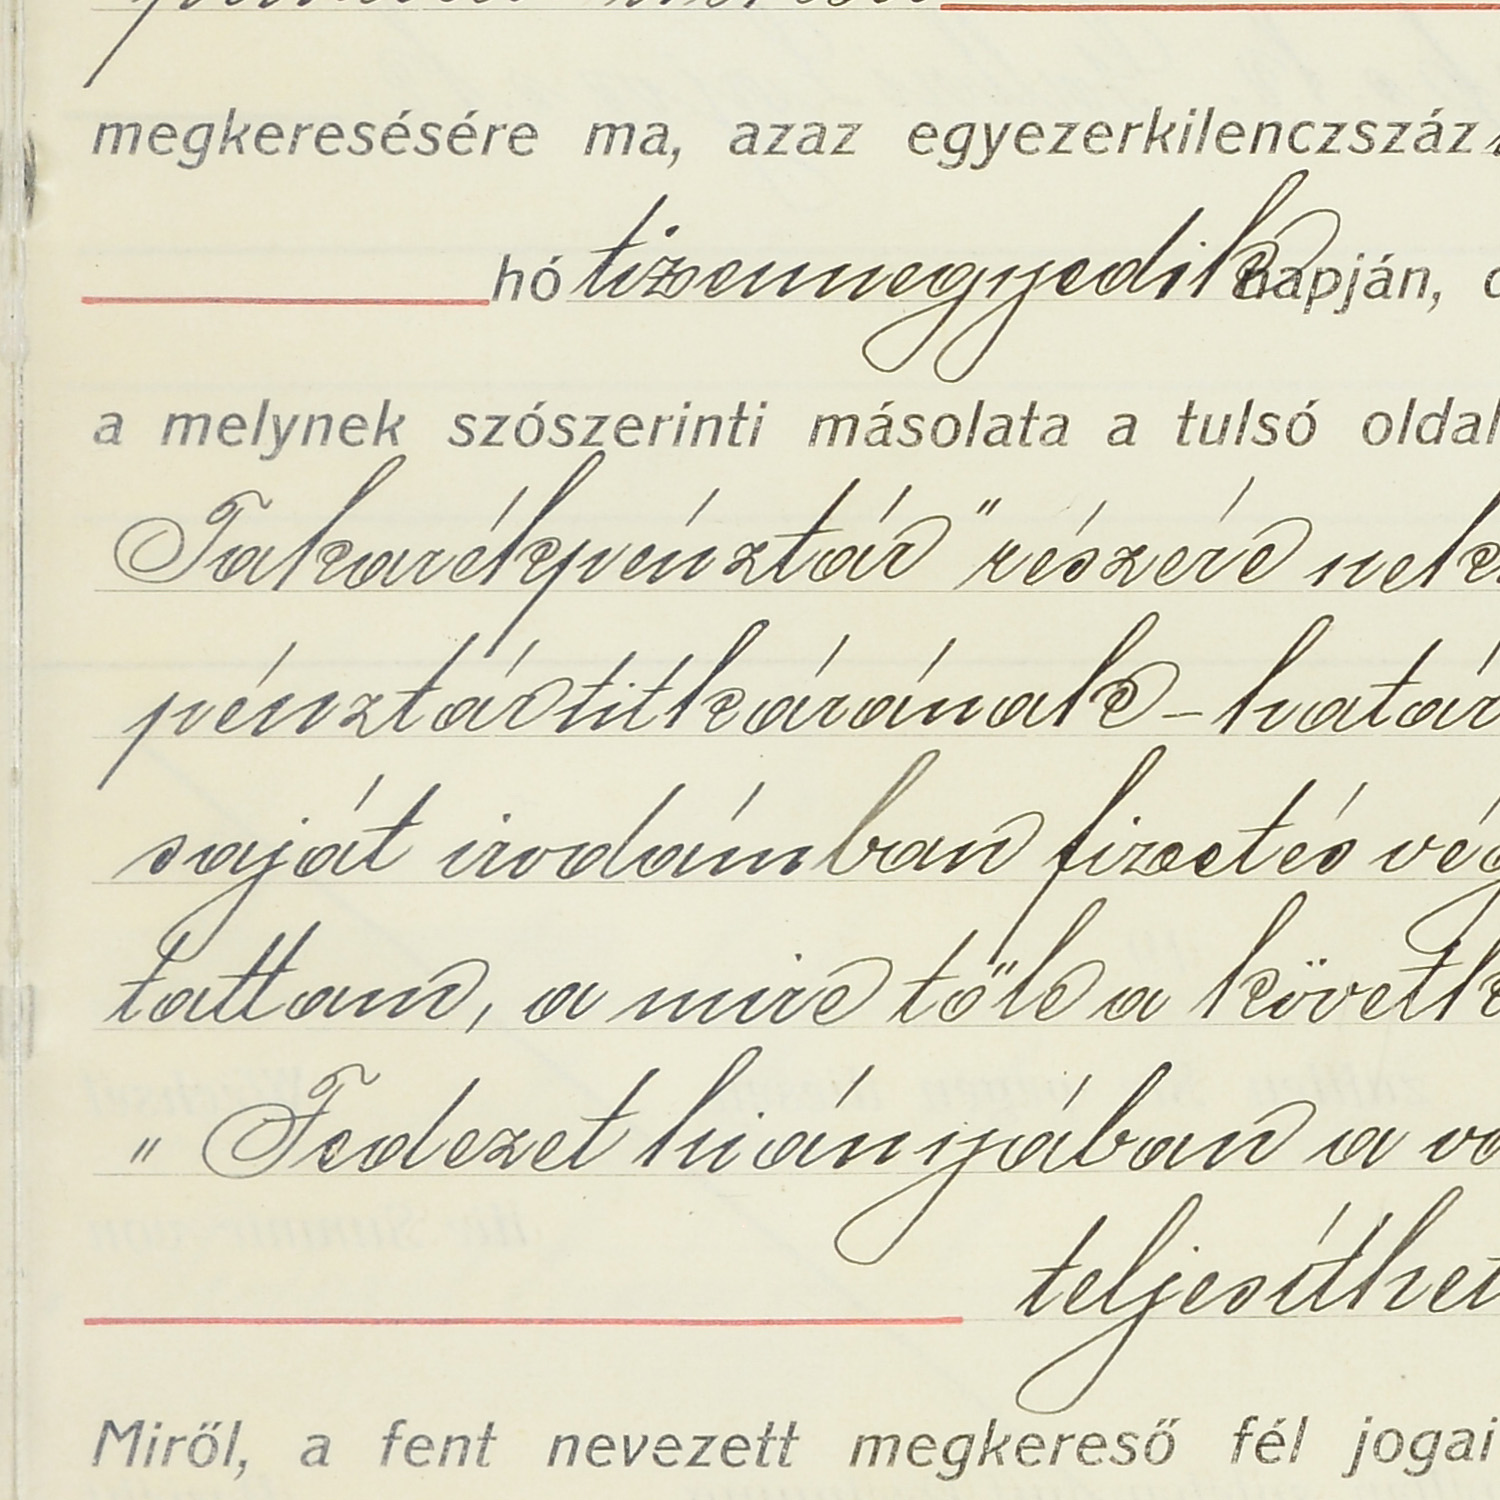 megkeresésére ma, azaz egyezerkilenczszáz
hó tizennegyedik napján,
a melynek szószerinti másolata a tulsó oldal
Takarékpénztár" részére nek
pénztártitkárának - határ
saját irodámban fizetés vég
tattam, a mire tőle a követk
" Fedezet hiányában a vá
teljesíthet
Miről, a fent nevezett megkereső fél jogai